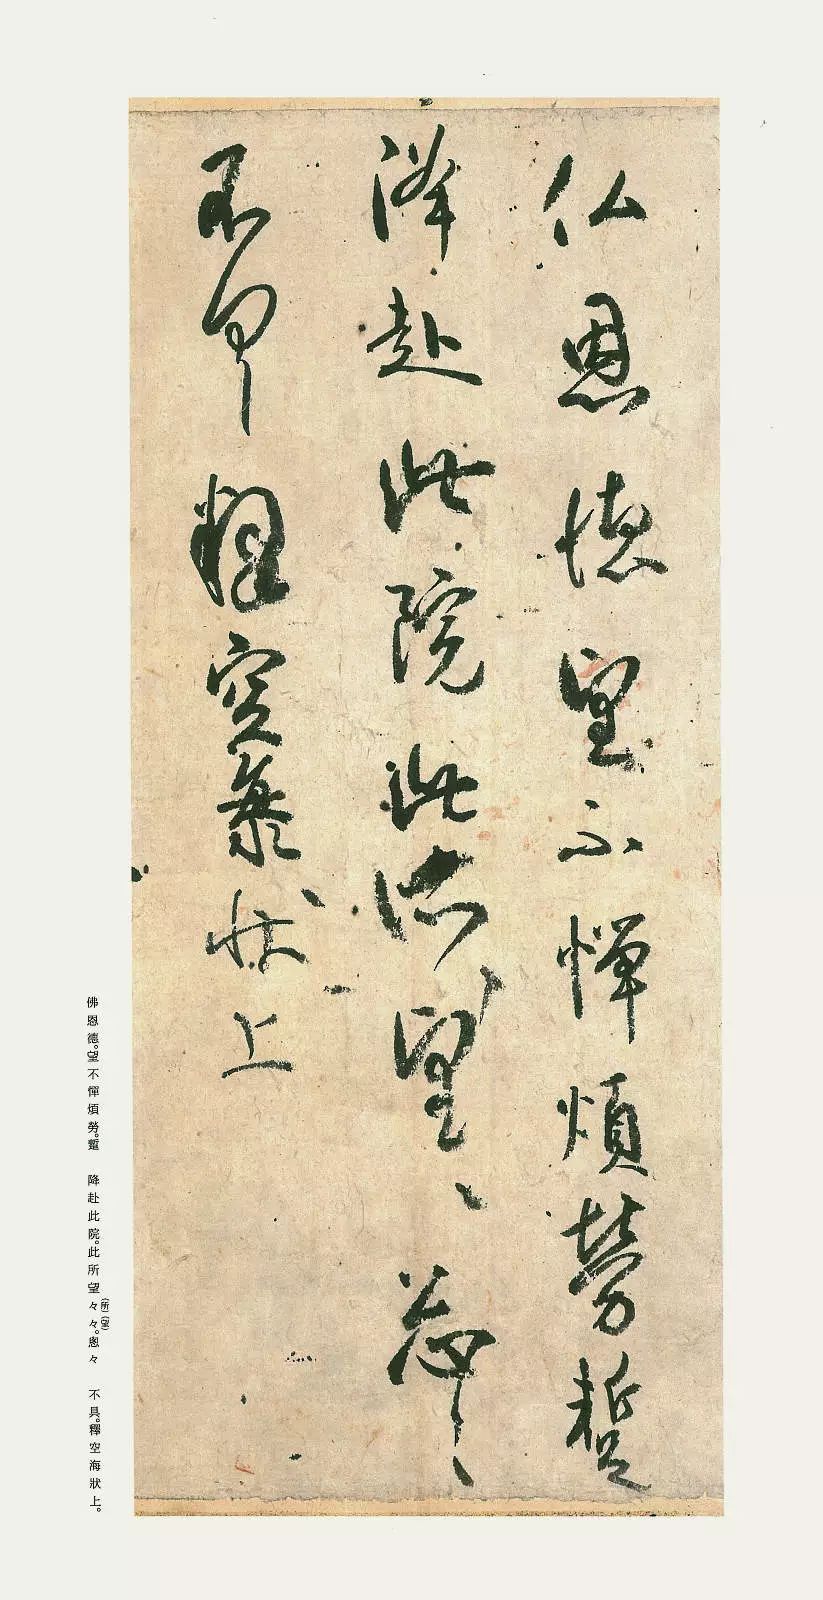 仏恩徳望不憚煩勞蹔
降赴此院此所望〻忩〻
不具釋空海状上
佛恩德。望不憚煩勞。蹔　降赴此院。此所望々々。悤々　不具。釋空海狀上。
(所)(望)